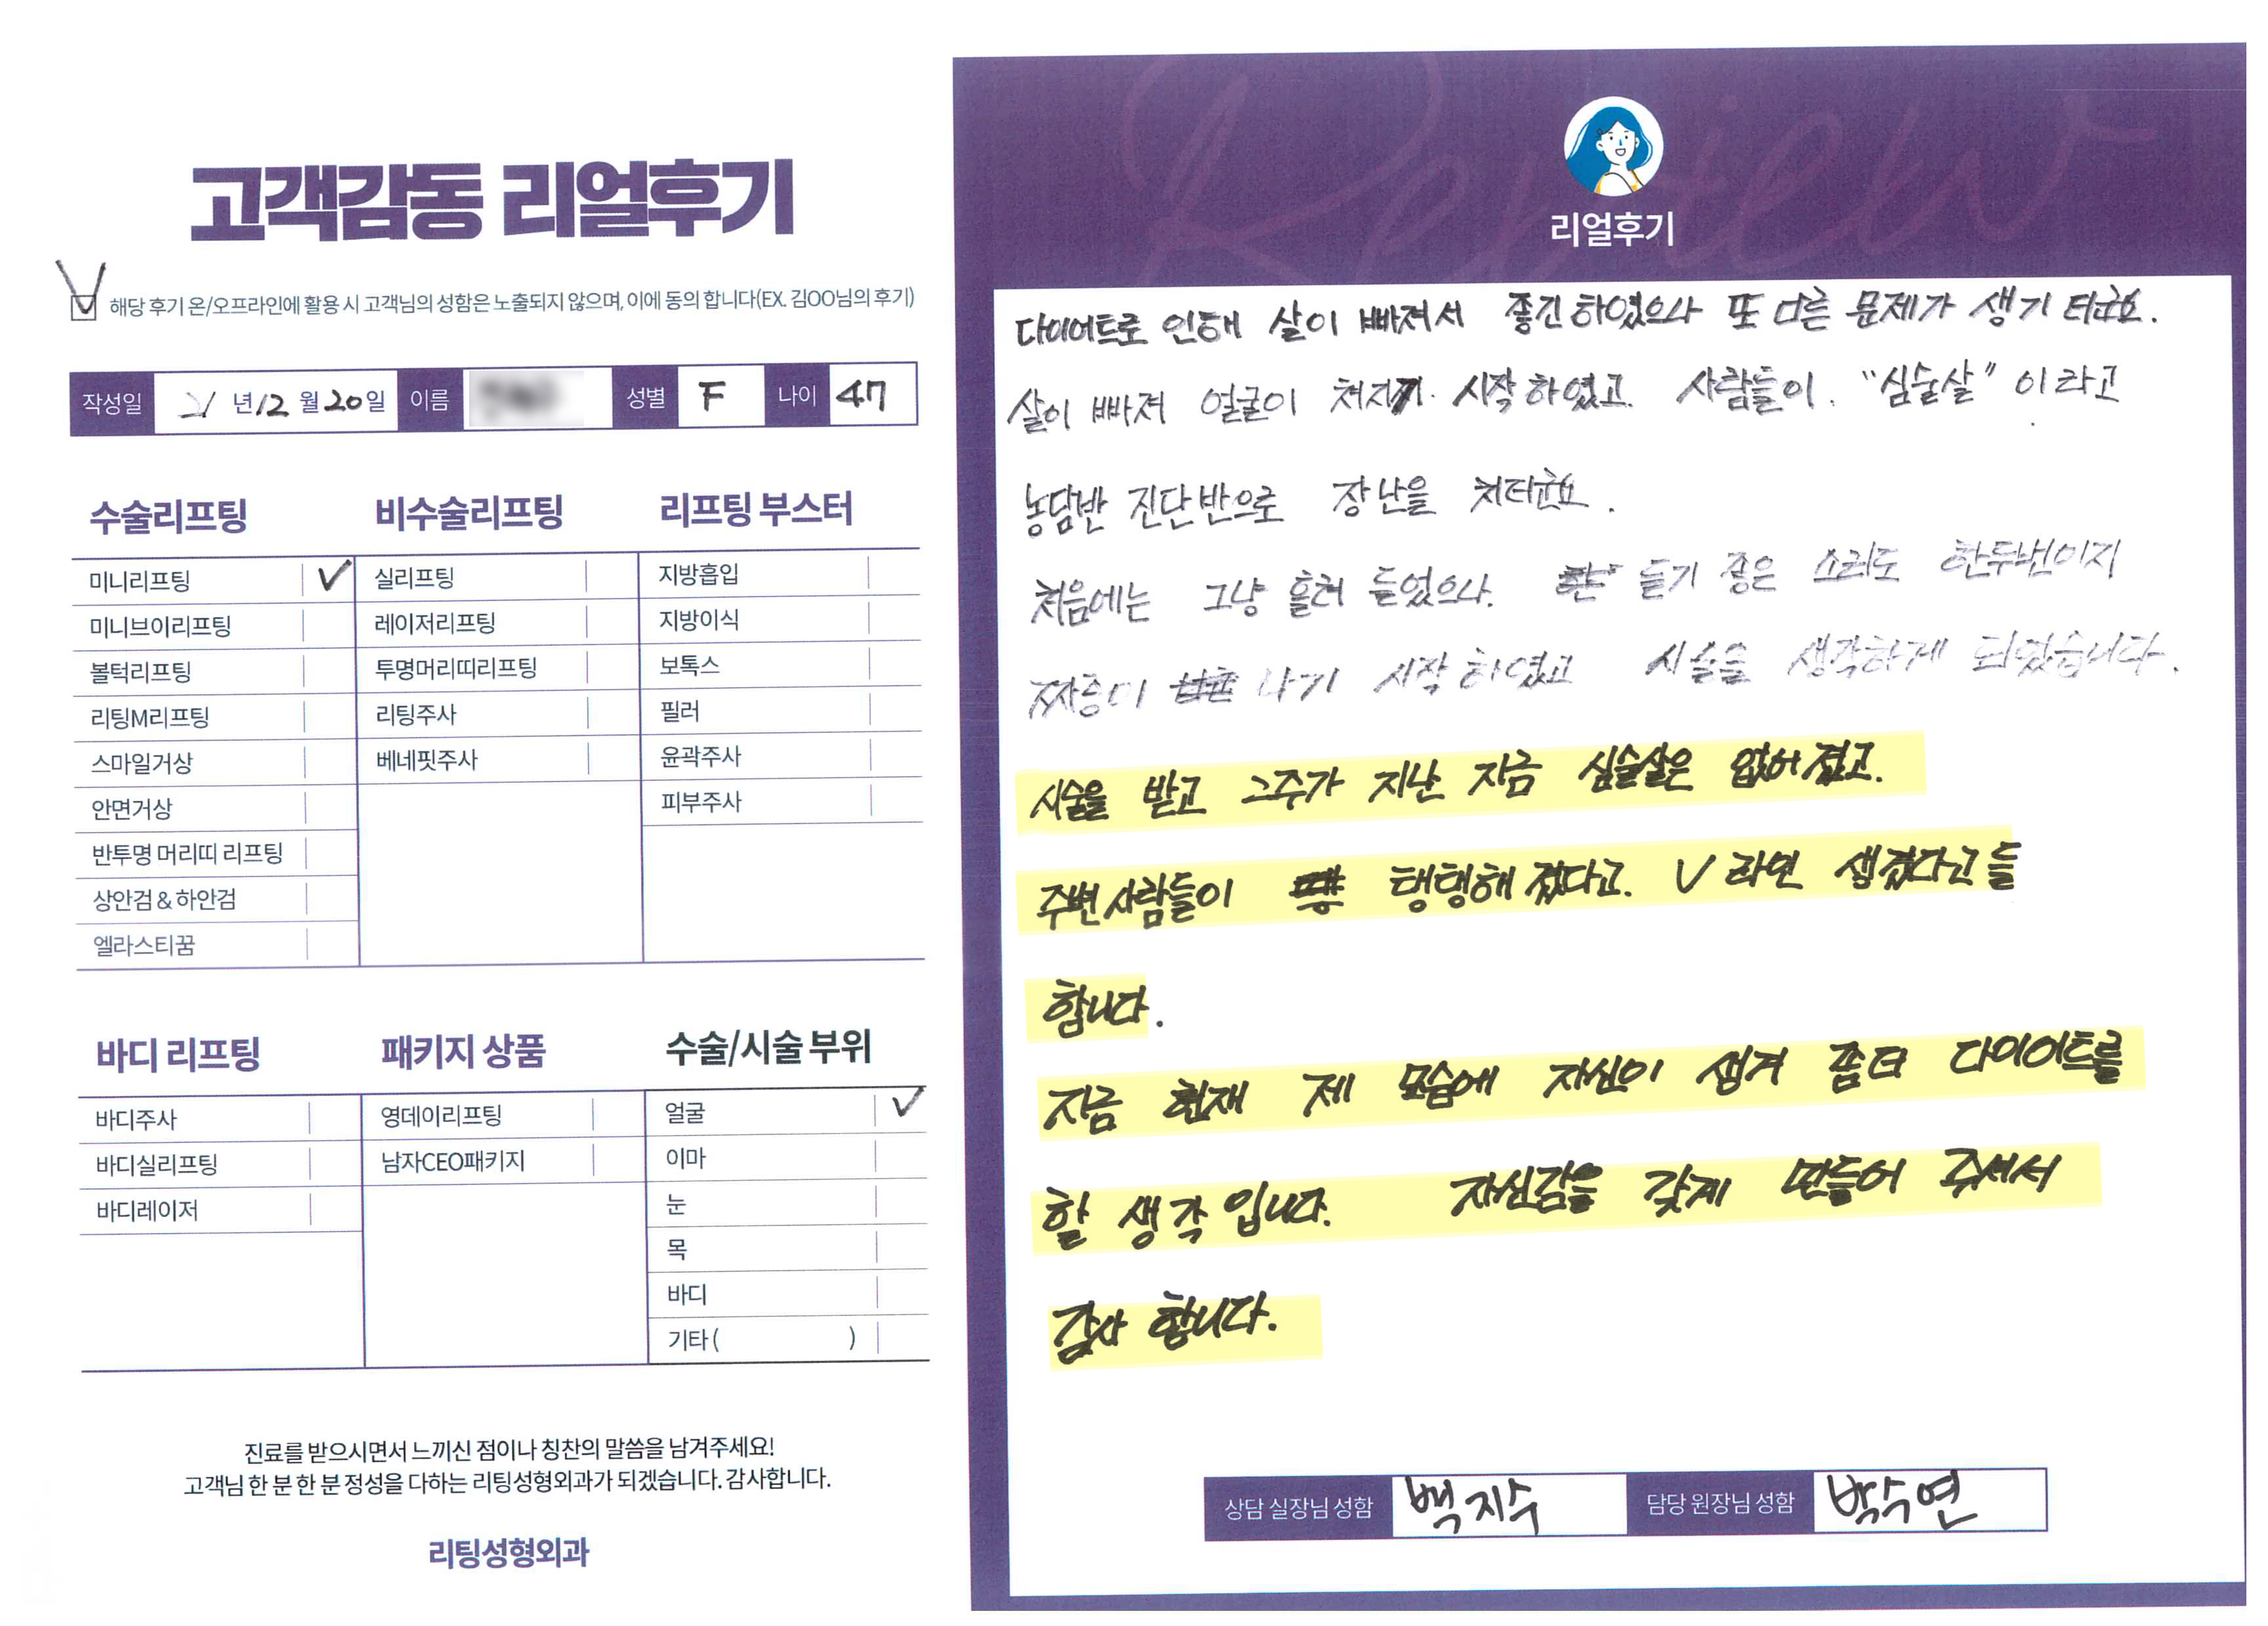 고객감동 리얼후기
해당 후기 온/오프라인에 활용 시 고객님의 성함은 노출되지 않으며, 이에 동의 합니다(EX. 김OO님의 후기)
작성일 21 년 12 월 20 일 이름 성별 F 나이 47
수술리프팅
미니리프팅 ✓
미니브이리프팅
볼턱리프팅
리팅M리프팅
스마일거상
안면거상
반투명 머리띠 리프팅
상안검 & 하안검
엘라스티꿈
비수술리프팅
실리프팅
레이저리프팅
투명머리띠리프팅
리팅주사
베네핏주사
리프팅 부스터
지방흡입
지방이식
보톡스
필러
윤곽주사
피부주사
바디 리프팅
바디주사
바디실리프팅
바디레이저
패키지 상품
영데이리프팅
남자CEO패키지
수술/시술 부위
얼굴 ✓
이마
눈
목
바디
기타 ( )
진료를 받으시면서 느끼신 점이나 칭찬의 말씀을 남겨주세요!
고객님 한 분 한 분 정성을 다하는 리팅성형외과가 되겠습니다. 감사합니다.
리팅성형외과
Review
리얼후기
다이어트로 인해 살이 빠져서 좋긴 하였으나 또 다른 문제가 생기 더군요.
살이 빠져 얼굴이 쳐지기 시작 하였고 사람들이 "심술살" 이라고
농담반 진단반으로 장난을 치더군요.
처음에는 그냥 흘려 들었으나. 듣기 좋은 소리도 한두번이지
짜증이 나기 시작 하였고 시술을 생각하게 되었습니다.
시술을 받고 2주가 지난 지금 심술살은 없어졌고.
주변 사람들이 탱탱해 졌다고. V 라인 생겼다고 들
합니다.
지금 현재 제 모습에 자신이 생겨 좀더 다이어트를
할 생각 입니다. 자신감을 갖게 만들어 주셔서
감사 합니다.
상담 실장님 성함 백지수 담당 원장님 성함 박수연